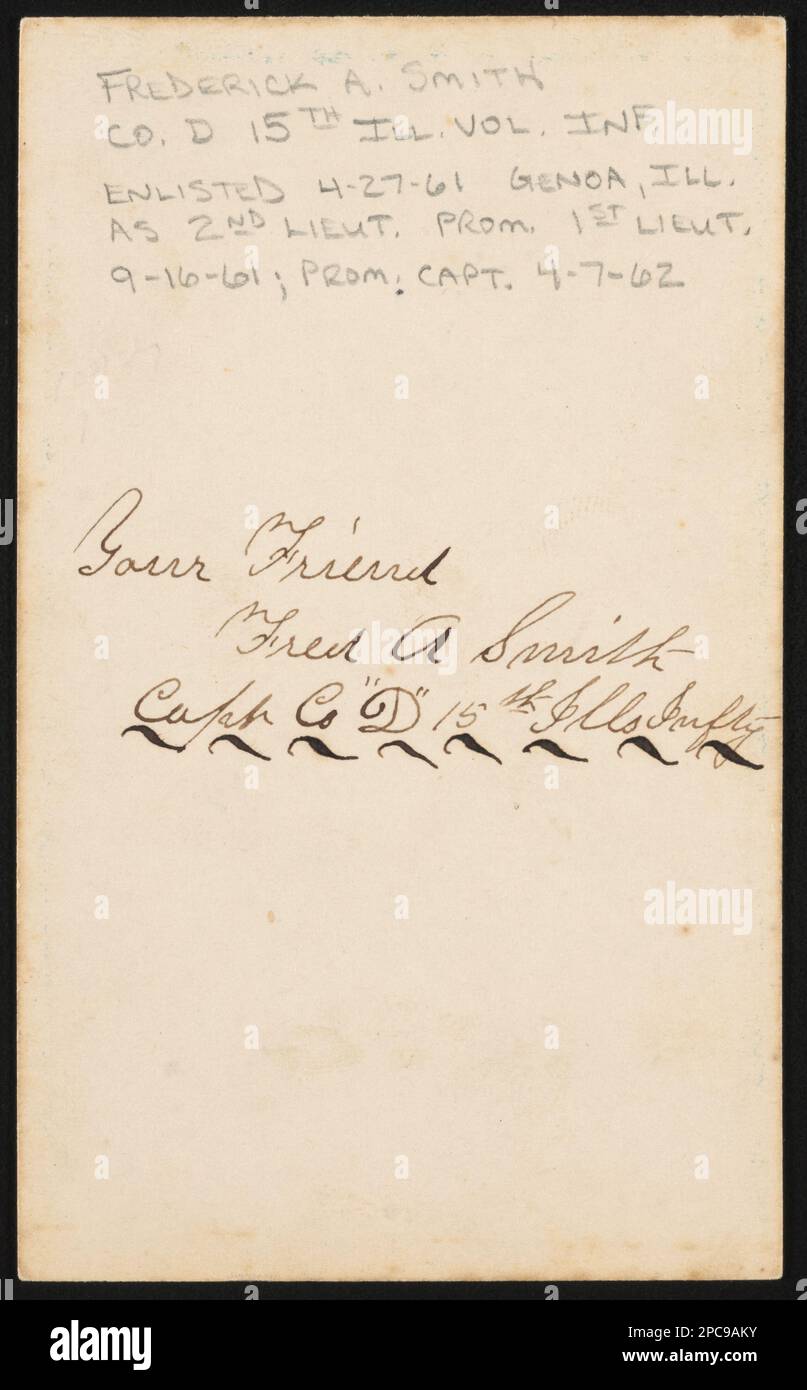 FREDERICK A. SMITH
CO. D 15TH ILL. VOL. INF
ENLISTED 4-27-61 GENOA, ILL.
AS 2ND LIEUT. PROM. 1ST LIEUT.
9-16-61; PROM. CAPT. 4-7-62
Your Friend
Fred A Smith
Capt Co "D" 15th Ills Infty
alamy
Image ID: 2PC9AKY
www.alamy.com